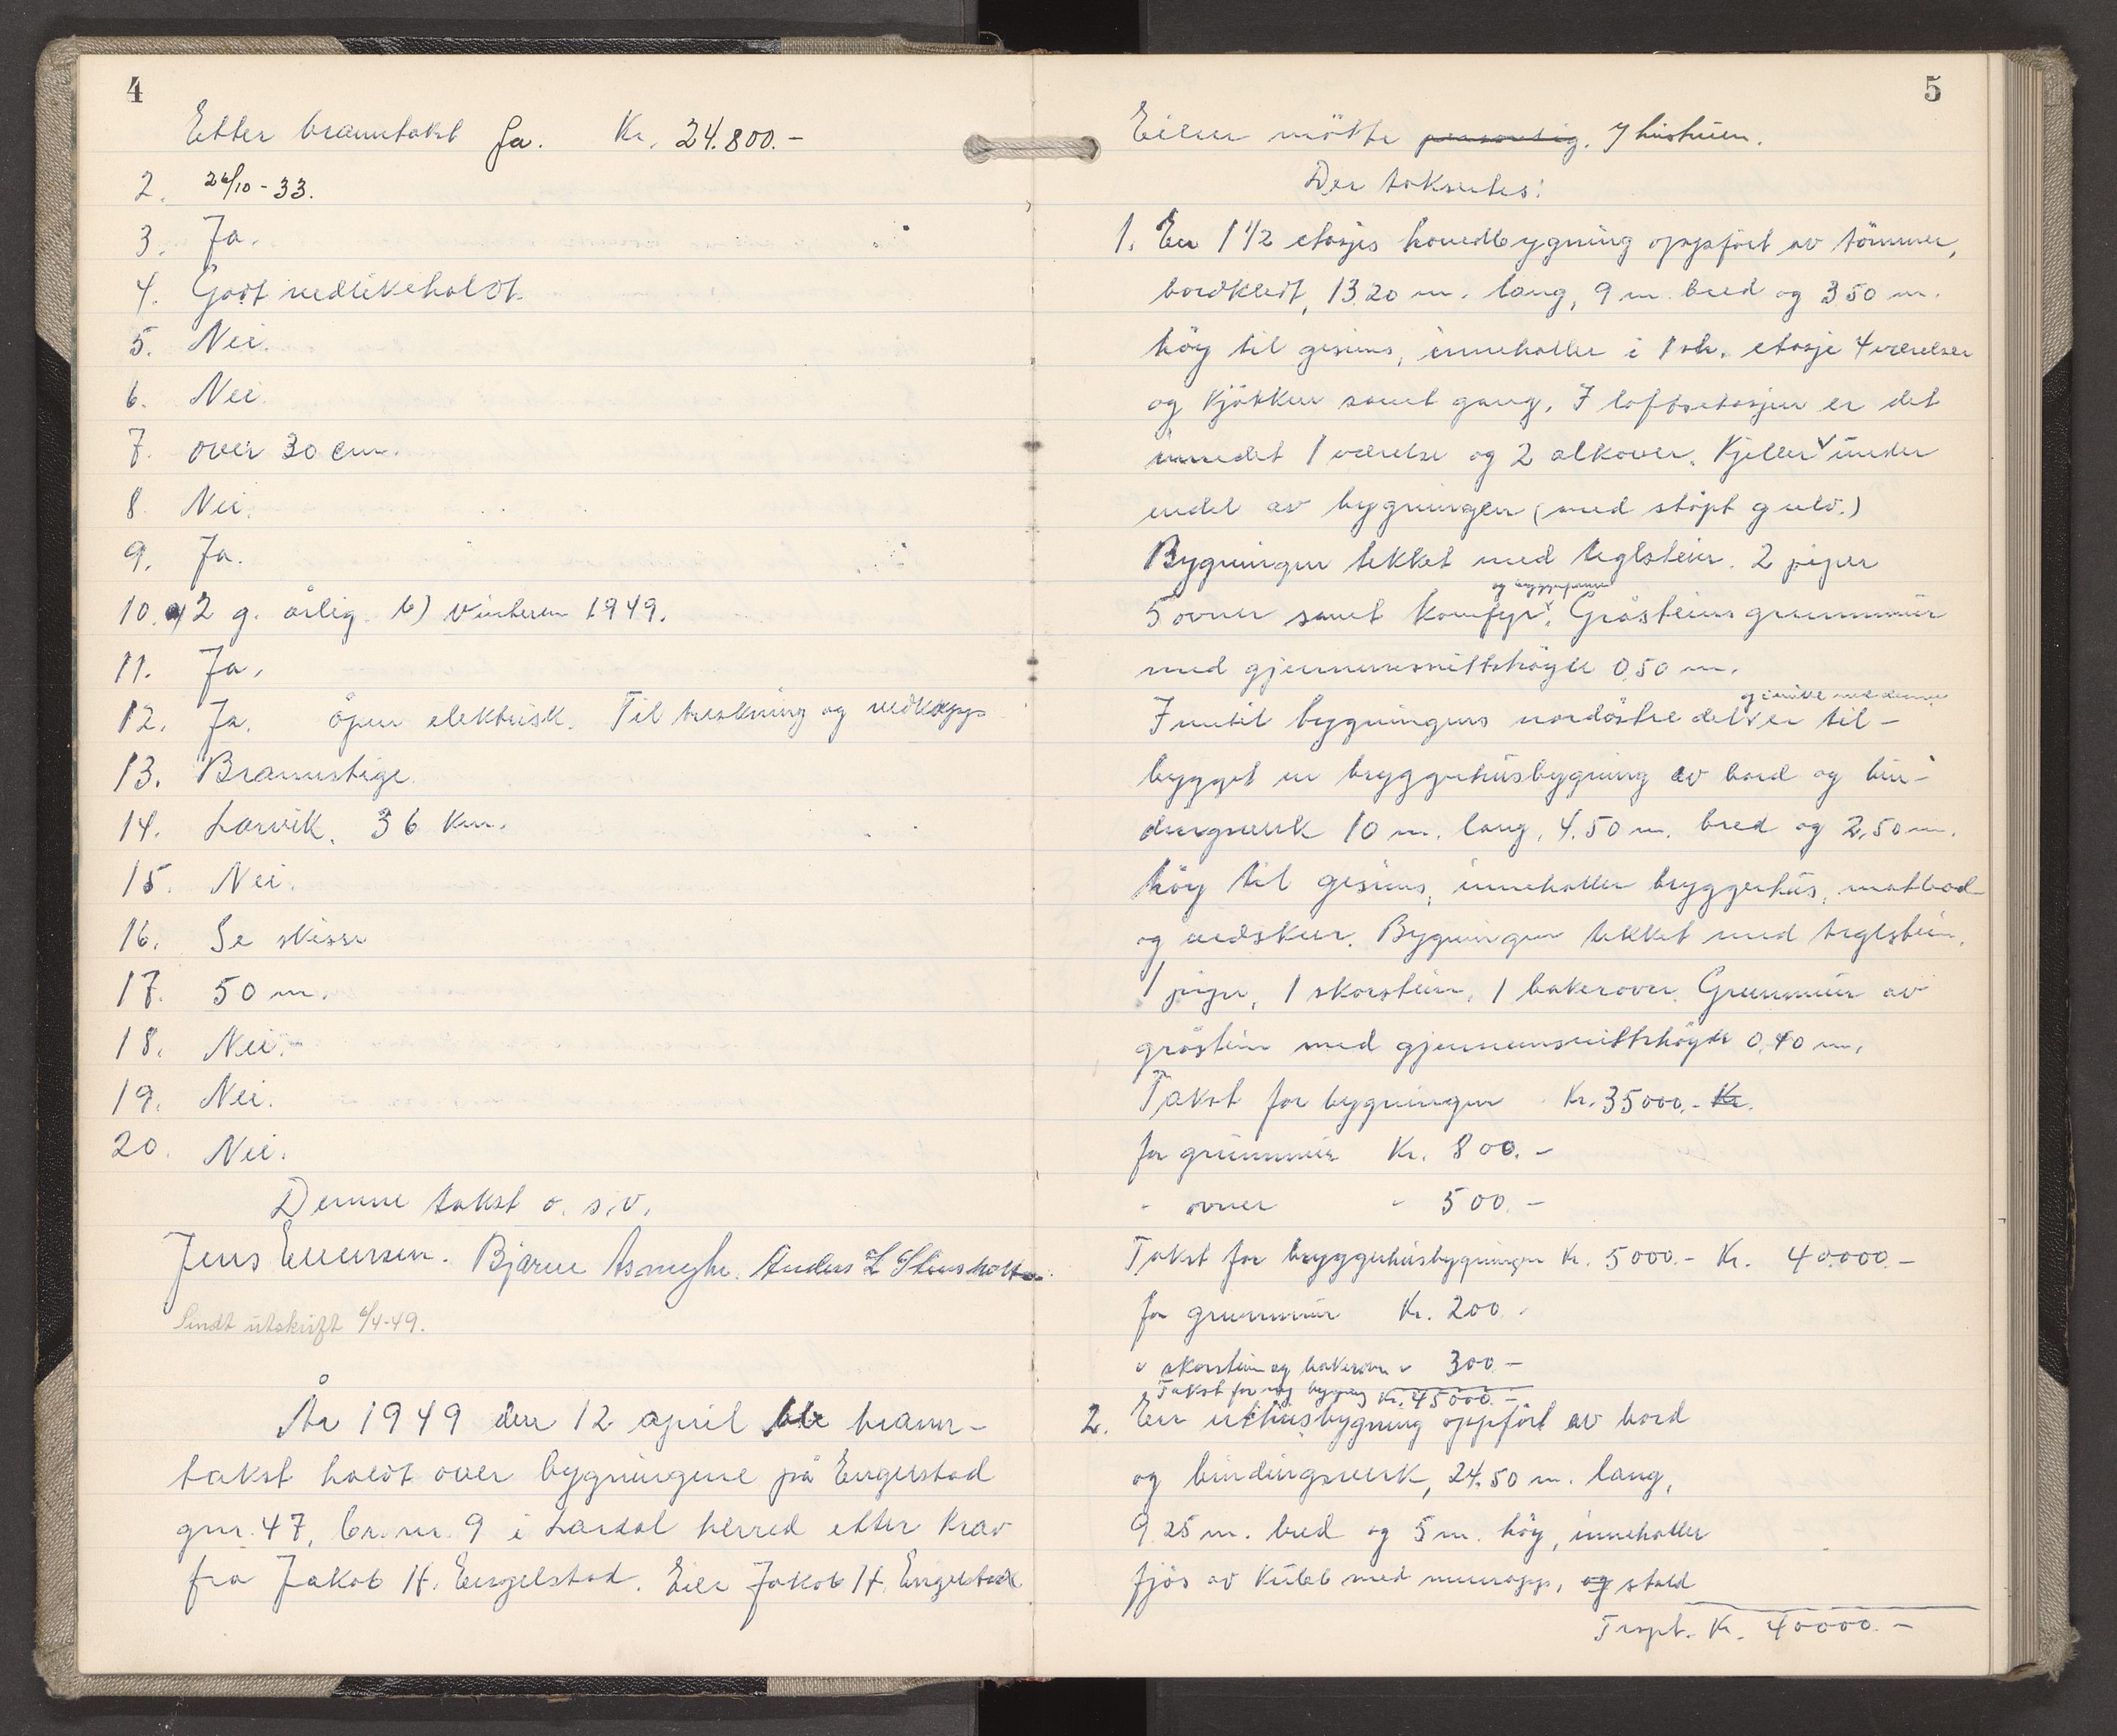 4
Etter branntakst Ja. Kr. 24.800.-
2. 26/10-33.
3. Ja.
4. Godt vedlikeholdt.
5. Nei.
6. Nei.
7. over 30 cm.
8. Nei.
9. Ja.
10. a) 2 g. årlig b) Vinteren 1949.
11. Ja.
12. Ja. åpen elektrisk. Til treskning og vedkapp
13. Brannstige.
14. Larvik. 36 km.
15. Nei.
16. Se skisse
17. 50 m.
18. Nei.
19. Nei.
20. Nei.
Denne takst o. s. v.
Jens Evensen. Bjarne Anders L
Sendt utskrift 6/4-49.
År 1949 den 12 april ble brann-
takst holdt over bygningene på Engelstad
gnr. 47, br. nr. 9 i Lardal herred etter krav
fra Jakob H. Engelstad. Eier Jakob H. Engelstad
5
Eieren mötte personlig. v/ hustruen.
Der takseertes:
1. En 1 1/2 etasjes hovedbygning oppfört av tömmer,
bordkledt, 13.20 m. lang, 9 m. bred og 3.50 m.
höy til gesims, inneholder i 1ste. etasje 4 værelser
og kjökken samt gang. I loftsetasjen er det
innredet 1 værelse og 2 alkover. Kjeller under
endel av bygningen (med stöpt gulv.)
Bygningen tekket med teglstein. 2 piper
og bryggepanne
5 ovner samt komfyr. Gråsteins grunnmur
med gjennemsnittshöyde 0,50 m.
og i vinkel med denne
Inntil bygningens nordöstre del er til-
bygget en bryggerhusbygning av bord og bin-
dingsverk 10 m. lang, 4.50 m. bred og 2.50 m.
höy til gesims, inneholder bryggerhus, matbod
og vedskur. Bygningen tekket med teglstein.
1 pipe, 1 skorstein, 1 bakerovn. Grunnmur av
gråstein med gjennemsnittshöyde 0,40 m.
Takst for bygningen Kr. 35000.- Kr.
for grunnmur Kr. 800.-
" ovner " 500.-
Takst for bryggerhusbygningen Kr. 5000.- Kr. 40000.-
for grunnmur Kr. 200.-
" skorstein og bakerovn " 300.-
Takst for bygning Kr. 45000.-
2. En uthusbygning oppfört av bord
og bindingsverk, 24.50 m. lang,
9.25 m. bred og 5 m. höy, inneholder
fjös av kubb med murrapp, og stald
Trspt. Kr. 40000.-